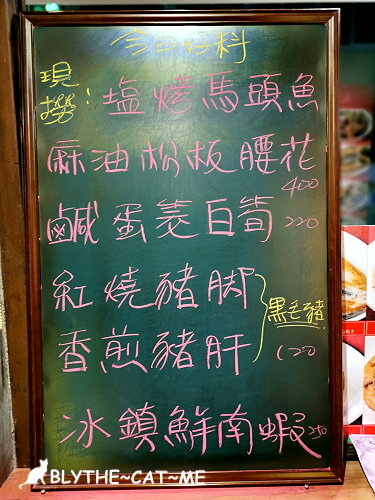 今日好料
現撈:塩烤馬頭魚
麻油松板腰花
400
鹹蛋苦白筍 220
紅燒豬腳
黑毛豬
香煎豬肝 120
冰鎮鮮南蝦 250
BLYTHE~CAT~ME